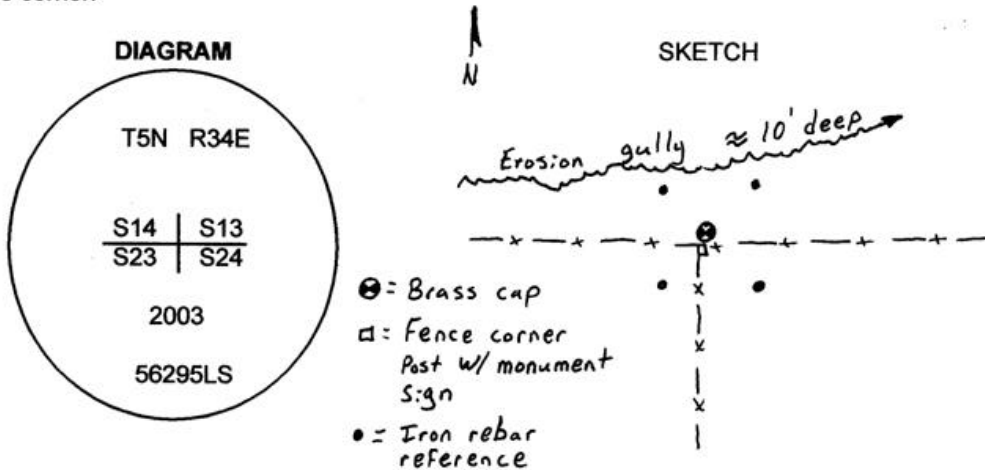 DIAGRAM
T5N R34E
S14 S13
S23 S24
2003
56295LS
N
SKETCH
Erosion gully ≈ 10' deep
= Brass cap
= Fence corner
Post w/ monument
Sign
= Iron rebar
reference